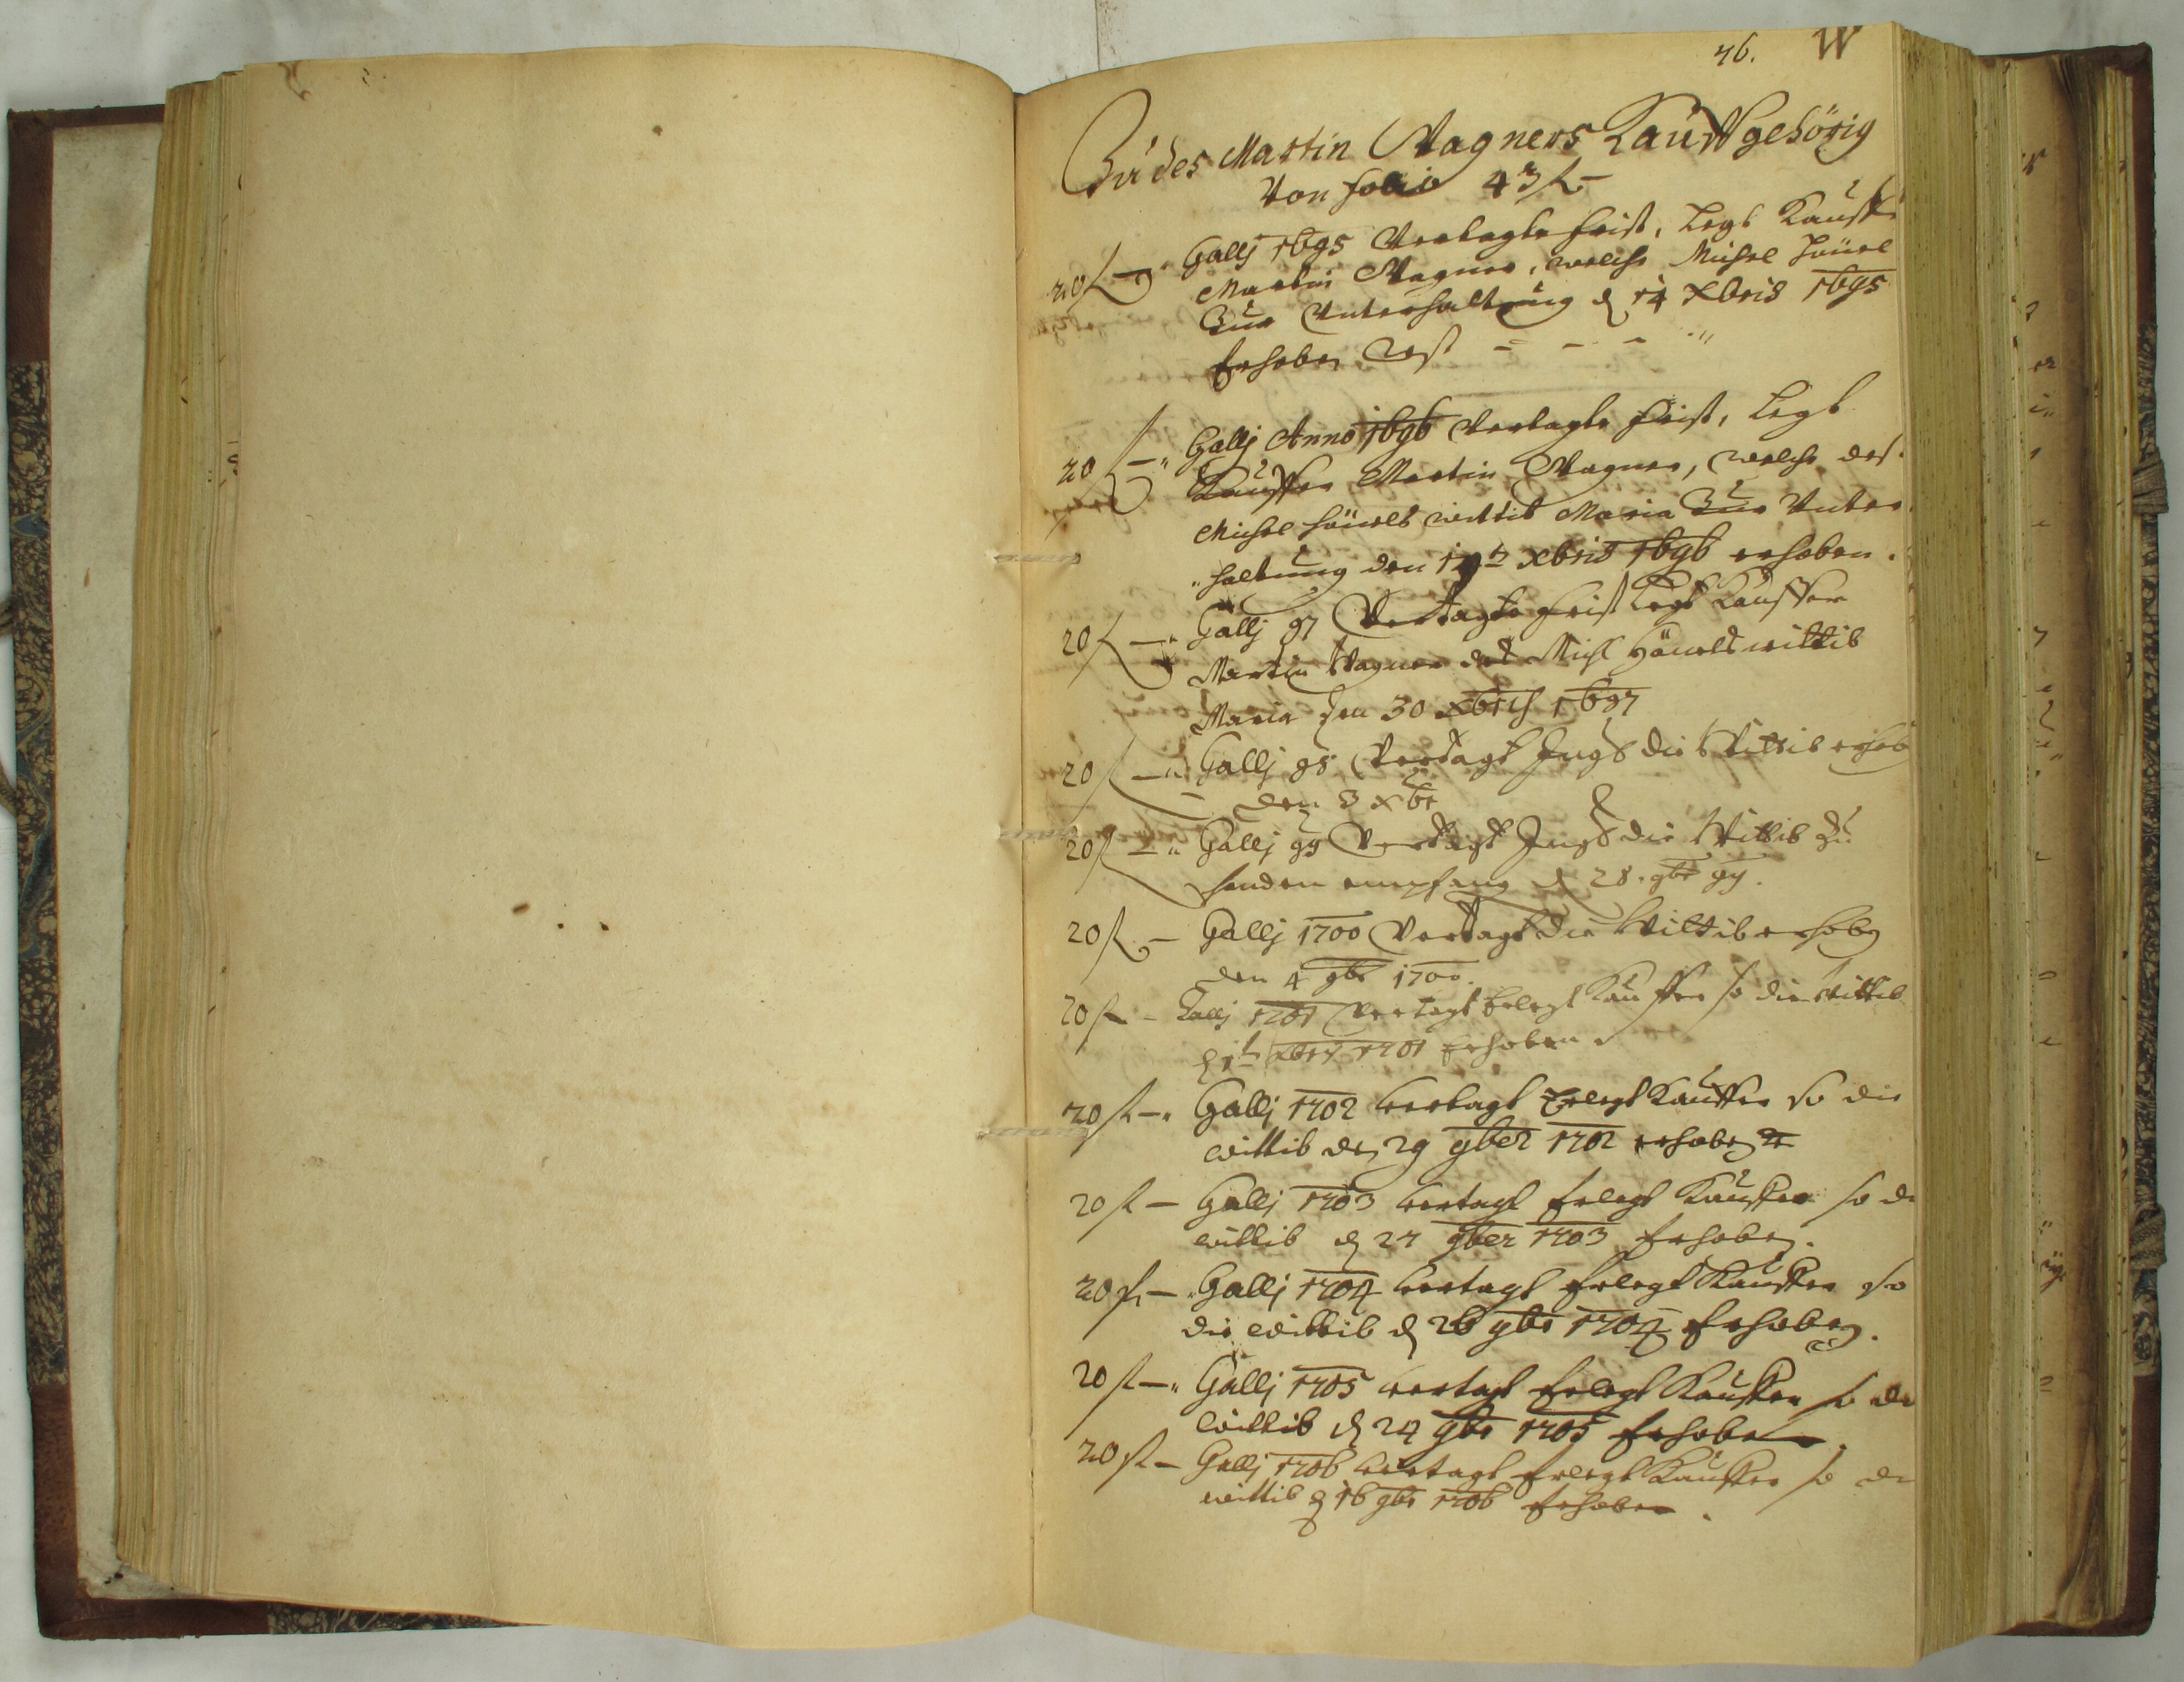 46. W
Zu des Martin Wagners Kauff gehörig
Von folio 43
20 f — Gallj 1695 Vertagte frist, Legt Kauffer
Martin Wagner, welche Michel Häusel
Zur Unterhaltung d 14 Xbris 1695
Erhoben
20 f — Gallj Anno 1696 Vertagte frist, Legt
Kauffer Martin Wagner, welche des
Michel wittib Maria Zur Unter
haltung den Xbris 1696 erhoben.
20 f — Gallj 97 Vertagte frist Legt Kauffer
Martin Wagner des Michl wittib
Maria den 30 Xbris 1697
20 f — Gallj 98 Vertagt die Wittib erhob
den 3 Xbr
20 f — Gallj 99 Vertagt die Wittib Zu
handen empfang d 28. 9br 99.
20 f — Gallj 1700 Vertagt die Wittib erhobn
den 4 9br 1700.
20 f — Gallj 1701 Vertagt Erlegt Kauffer so die Wittib
d 1t Xbris 1701 Erhoben
20 f — Gallj 1702 vertagt Erlegt Kauffer so die
wittib den 29 9ber 1702 erhobn
20 f — Gallj 1703 vertagt Erlegt Kauffer so di
wittib d 27 9ber 1703 Erhoben.
20 f — Gallj 1704 vertagt Erlegt Kauffer so
die wittib d 26 9br 1704 Erhoben.
20 f — Gallj 1705 vertagt Erlegt Kauffer so di
wittib d 24 9br 1705 Erhoben
20 f — Gallj 1706 vertagt Erlegt Kauffer so di
wittib d 16 9br 1706 Erhoben.